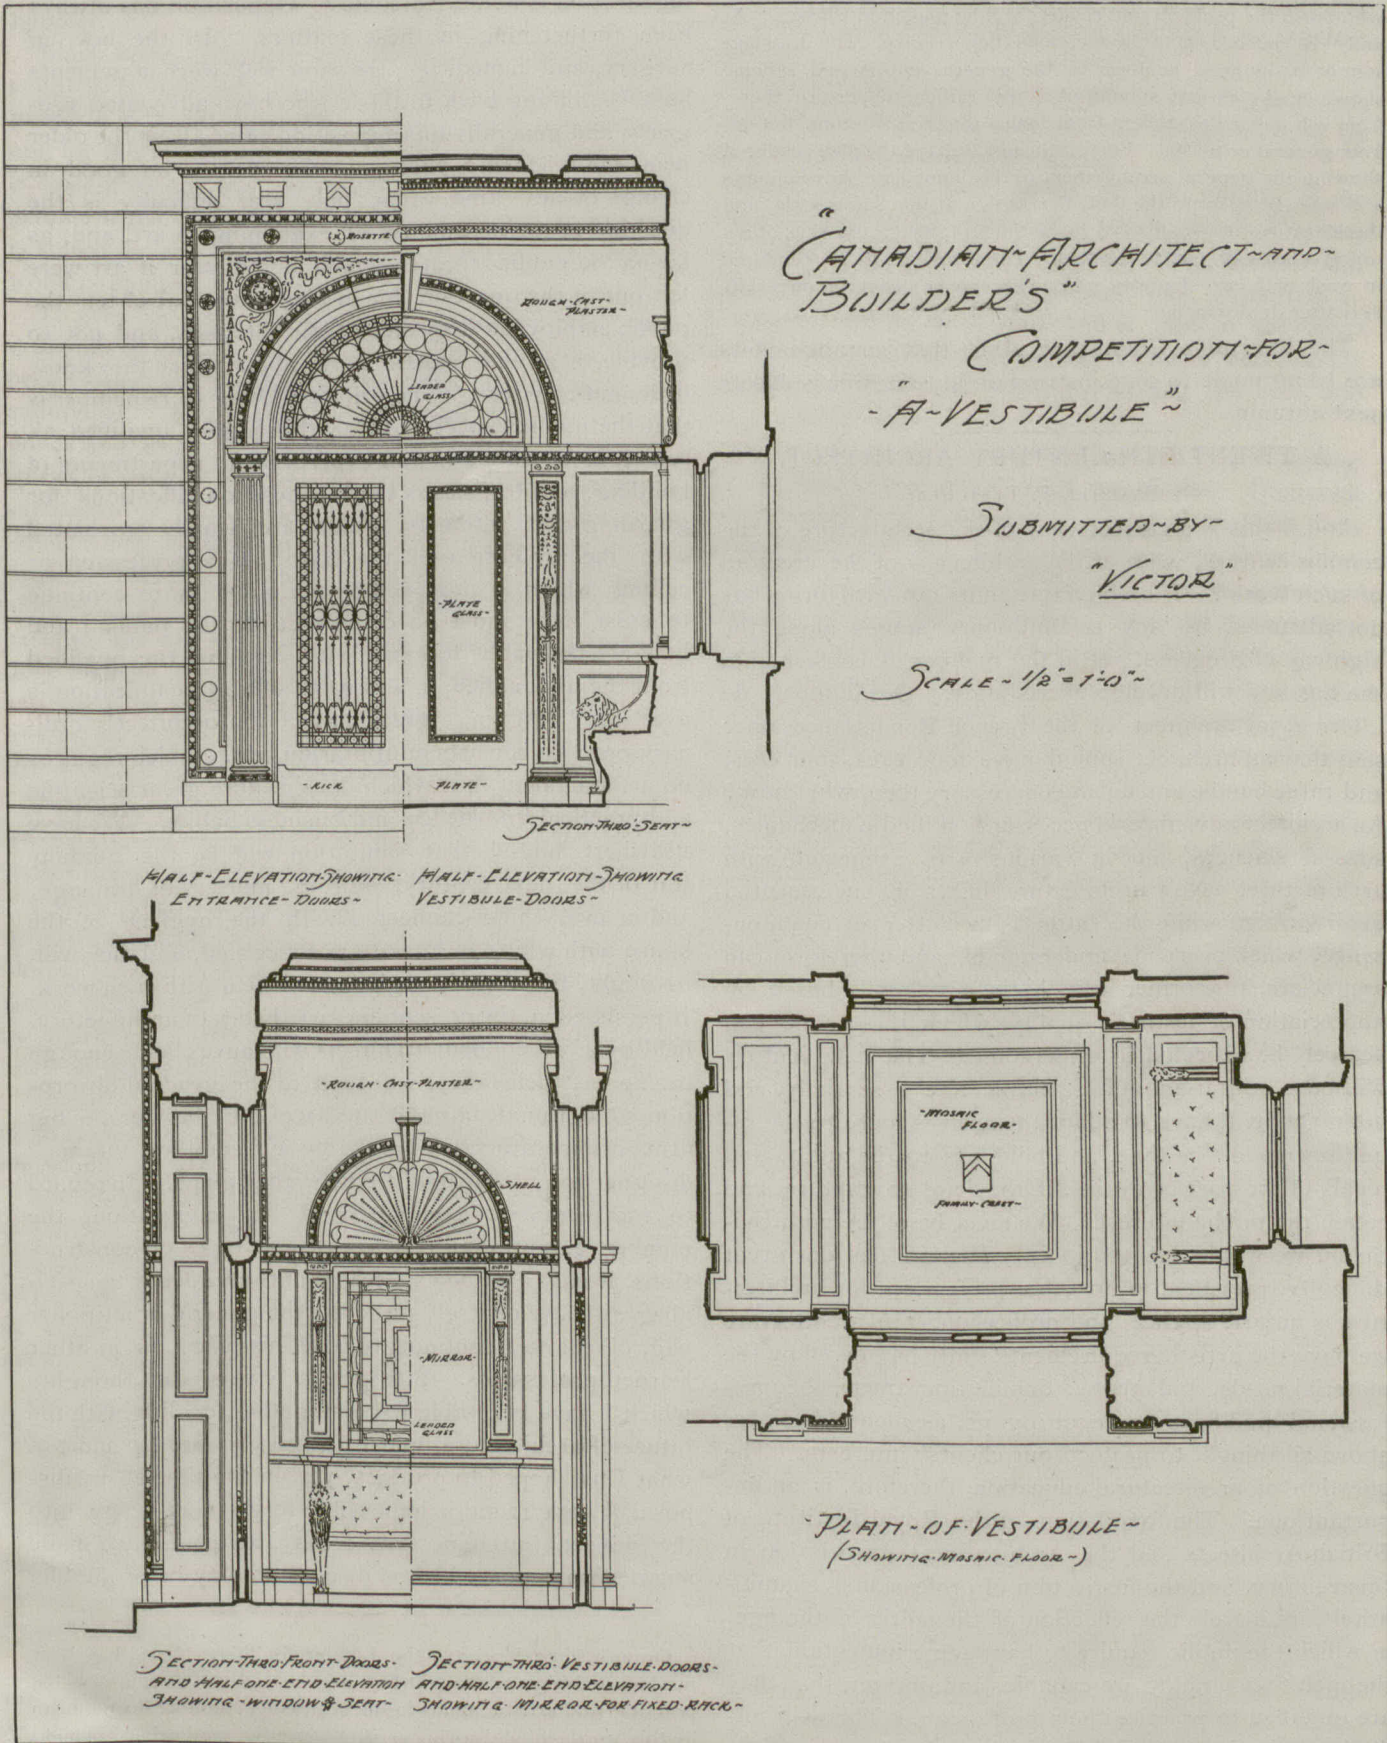 "CANADIAN~ARCHITECT~AND~
BUILDER'S"
COMPETITION~FOR~
-"A~VESTIBULE"~
SUBMITTED~BY~
"VICTOR"
SCALE~1/2"=1'-0"~
ROSETTE
ROUGH-CAST-
PLASTER-
LEADED
GLASS-
-PLATE
GLASS-
-KICK PLATE-
SECTION-THRO'-SEAT~
HALF-ELEVATION-SHOWING-
ENTRANCE-DOORS-
HALF-ELEVATION-SHOWING
VESTIBULE-DOORS-
-ROUGH-CAST-PLASTER-
SHELL
-MIRROR-
LEADED
GLASS
-MOSAIC
FLOOR-
FAMILY-CREST-
-PLAN-OF-VESTIBULE~
(SHOWING-MOSAIC-FLOOR-)
SECTION-THRO-FRONT-DOORS-
AND-HALF-ONE-END-ELEVATION
SHOWING-WINDOW & SEAT-
SECTION-THRO'-VESTIBULE-DOORS-
AND-HALF-ONE-END-ELEVATION-
SHOWING-MIRROR-FOR-FIXED-RACK~